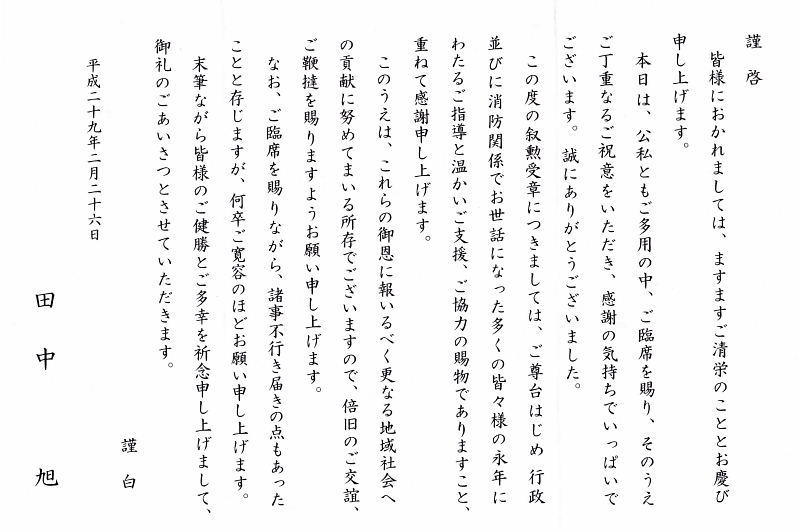 謹啓
皆様におかれましては、ますますご清栄のこととお慶び
申し上げます。
本日は、公私ともご多用の中、ご臨席を賜り、そのうえ
ご丁重なるご祝意をいただき、感謝の気持ちでいっぱいで
ございます。誠にありがとうございました。
この度の叙勲受章につきましては、ご尊台はじめ 行政
並びに消防関係でお世話になった多くの皆々様の永年に
わたるご指導と温かいご支援、ご協力の賜物でありますこと、
重ねて感謝申し上げます。
このうえは、これらの御恩に報いるべく更なる地域社会へ
の貢献に努めてまいる所存でございますので、倍旧のご交誼、
ご鞭撻を賜りますようお願い申し上げます。
なお、ご臨席を賜りながら、諸事不行き届きの点もあった
ことと存じますが、何卒ご寛容のほどお願い申し上げます。
末筆ながら皆様のご健勝とご多幸を祈念申し上げまして、
御礼のごあいさつとさせていただきます。
謹白
平成二十九年二月二十六日
田中 旭